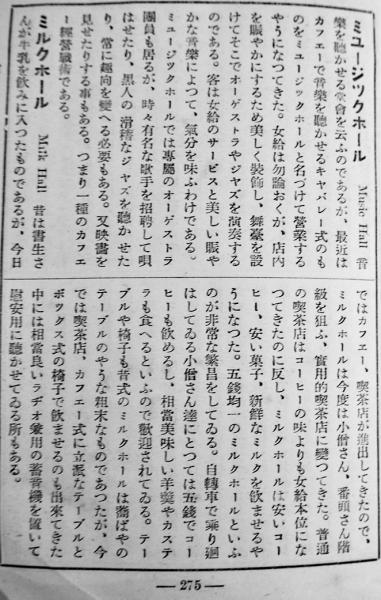 ミユージツクホール　Music Hall　音
樂を聽かせる堂會を云ふのであるが、最近は
カフエーで音樂を聽かせるキヤバレー式のも
のをミユージツクホールと名づけて營業する
やうになつてきた。女給は勿論おくが、店内
を賑やかにするため美しく裝飾し、舞臺を設
けてそこでオーケストラやジヤズを演奏する
のである。客は女給のサービスと美しい賑や
かな音樂によつて、氣分を味ふわけである。
ミユージツクホールでは專屬のオーケストラ
團員も居るが、時々有名な歌手を招聘して唄
はせたり、黑人の滑稽なジヤズを聽かせた
り、常に趣向を變へる必要もある。又映畫を
見せたりする事もある。つまり一種のカフエ
ー經營戰術である。
ミルクホール　Milk Hall　昔は書生さ
んが牛乳を飮みに入つたものであるが、今日
ではカフエー、喫茶店が進出してきたので、
ミルクホールは今度は小僧さん、番頭さん階
級を狙ふ、實用的喫茶店に變つてきた。普通
の喫茶店はコーヒーの味よりも女給本位にな
つてきたのに反し、ミルクホールは安いコー
ヒー、安い菓子、新鮮なミルクを飮ませるや
うになつた。五錢均一のミルクホールといふ
のが非常な繁昌をしてゐる。自轉車で乘り廻
はしてゐる小僧さん達にとつては五錢でコー
ヒーも飮めるし、相當美味しい羊羹やカステ
ラも食へるといふので歡迎されてゐる。テー
ブルや椅子も昔式のミルクホールは蕎ばやの
テーブルのやうな粗末なものであつたが、今
では喫茶店、カフエー式に立派なテーブルと
ボツクス式の椅子で飮ませるのも出來てきた
中には相當良いラヂオ兼用の蓄音機を置いて
慰安用に聽かせてゐる所もある。
— 275 —